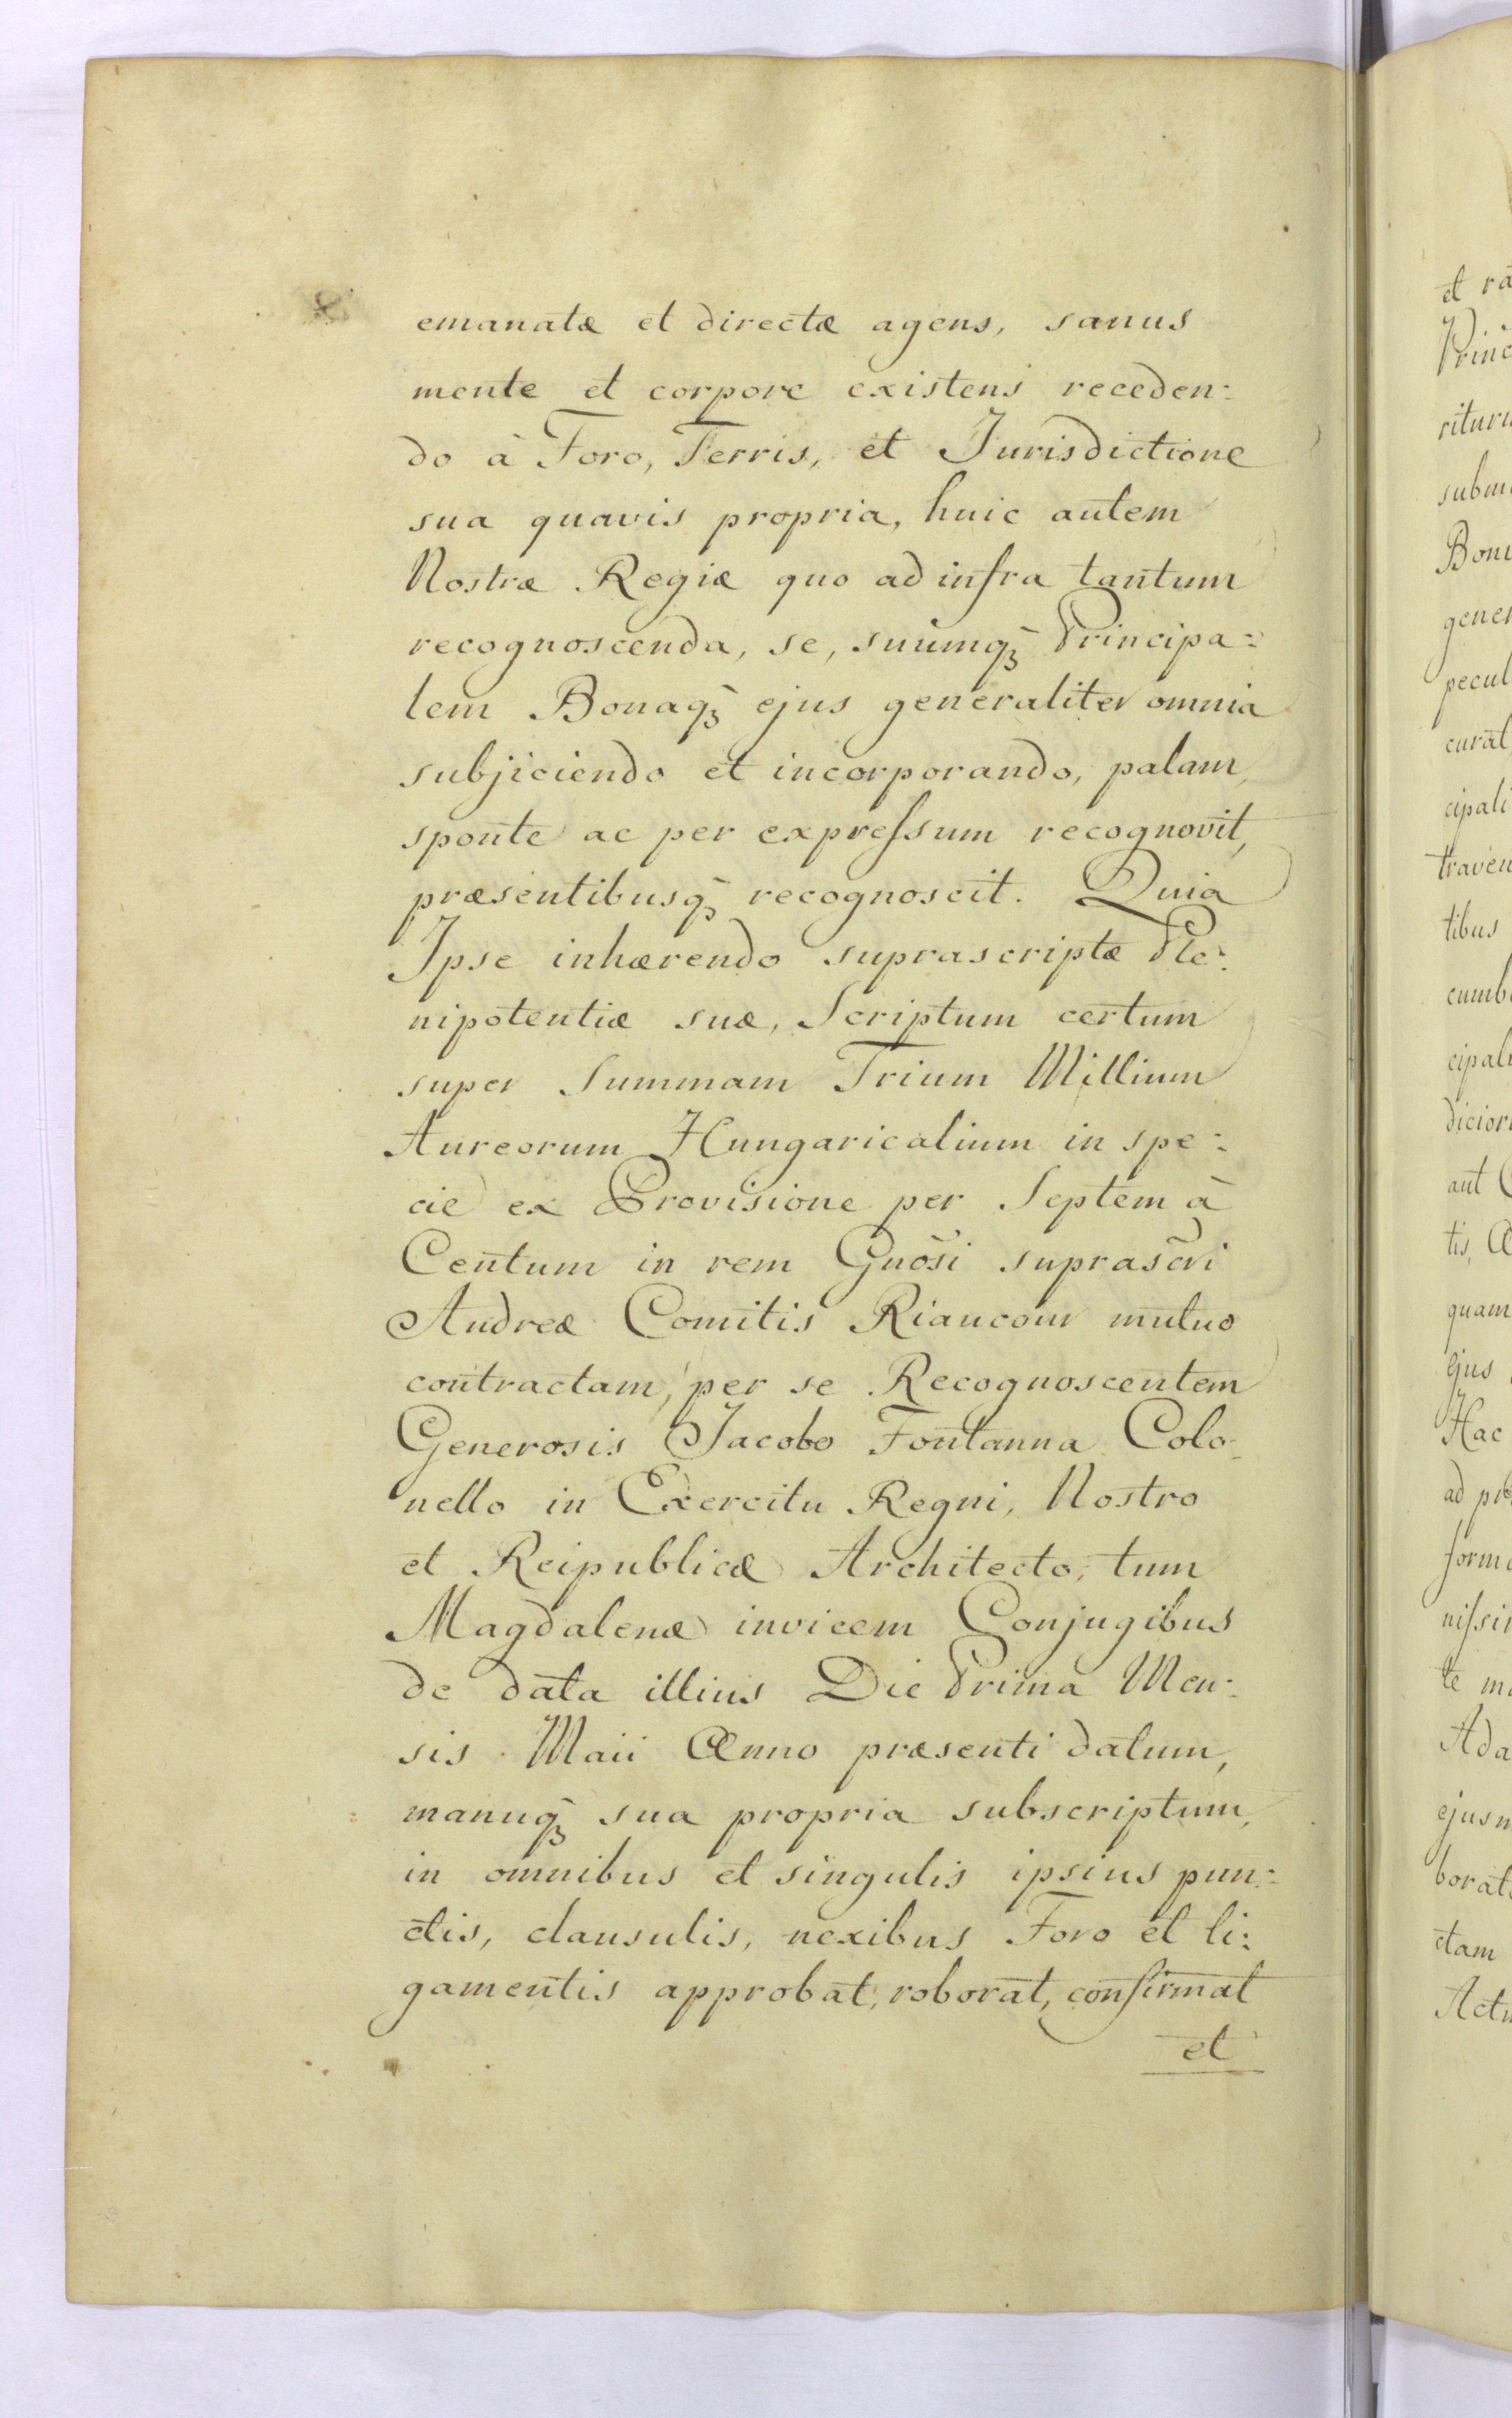 emanatæ et directæ agens, sanus
mente et corpore existens receden:
do à Foro, Terris, et Jurisdictione
sua quavis propria, huic autem
Nostræ Regiæ quo ad infra tantum
recognoscenda, se, suumqꝫ Principa:
lem Bonaqꝫ ejus generaliter omnia
subjiciendo et incorporando, palam,
sponte ac per expreſsum recognovit,
præsentibusqꝫ recognoscit. Quia
Ipse inhærendo suprascriptæ Ple:
nipotentiæ suæ, Scriptum certum
super Summam Trium Millium
Aureorum Hungaricalium in spe:
cie ex Provisione per Septem à
Centum in rem Gnōsi suprascr̃i
Andreæ Comitis Riaucour mutuo
contractam, per se Recognoscentem
Generosis Jacobo Fontanna Colo-
nello in Exercitu Regni, Nostro
et Reipublicæ Architecto, tum
Magdalenæ invicem Conjugibus
de data illius Die Prima Men:
sis Maii Anno præsenti datum,
manuqꝫ sua propria subscriptum,
in omnibus et singulis ipsius pun:
ctis, clausulis, nexibus Foro et li:
gamentis approbat, roborat, confirmat
et
et
subm
gener
pecul
curat,
cipali
tibus
aut
tis,
quam
ejus
Hac
ad
ctam